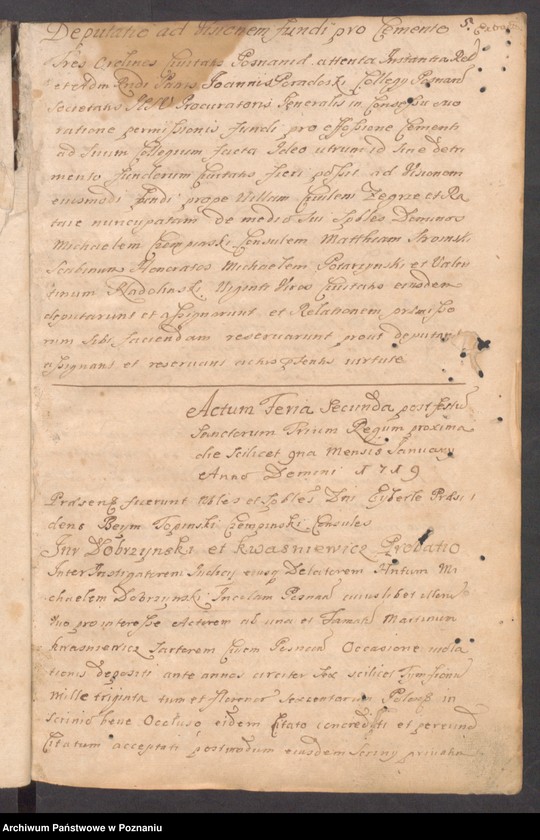 Deputatio ad Visionem fundi pro Cemento
5.
Tres Ordines Civitatis Posnaniae attenta Instantia Rndi
et Adm Rndi Patris Joannis Poradoski Collegij Posnan
Societatis JESU Procuratoris Generalis in Consessu suo
ratione permissionis fundi pro effossione Cementi
ad suum Collegium facta Ideo utrum id sine detri
mento fundorum Civitatis fieri possit ad Visionem
eiusmodi fundi prope Villam Civilem Zegrze et Ra
taie nuncupatam de medio sui Spbles Dominos
Michaelem Czempinski Consulem Matthaeum
Scabinum Honoratos Michaelem Potarzynski et Valen
tinum Kladolinski Viginti Viros Civitatis eiusdem
deputarunt et assignarunt et Relationem praemisso
rum sibi faciendam reservarunt prout deputant
assignant et reservant vectis pntis virtute
Actum Feria Secunda post festum
Sanctorum Trium Regum proxima
die scilicet 9na Mensis January
Anno Domini 1719
Praesens fuerunt Nbles et Spbles Dni Eyberle Praesi
dens Beym Topinski Czempinski Consules
Inr Dobrzynski et Kwasniewicz Probatio
Inter Instigatorem Judicij eiusq Delatorem Hntum Mi
chaelem Dobrzynski Incolam Posnan cuius libet
suo pro interesse Actorem ab una et Famatum Martinum
Kwasniewicz Sartorem Civem Posnan Occasione viola
tionis depositi ante annos circiter sex scilicet Tymfionu
Mille triginta tum et florenor Sexcentorum Polon in
scrinio bene Occluso eidem Citato concrediti et per eund
Citatum acceptati postmodum eiusdem Scriny privata
Archiwum Państwowe w Poznaniu